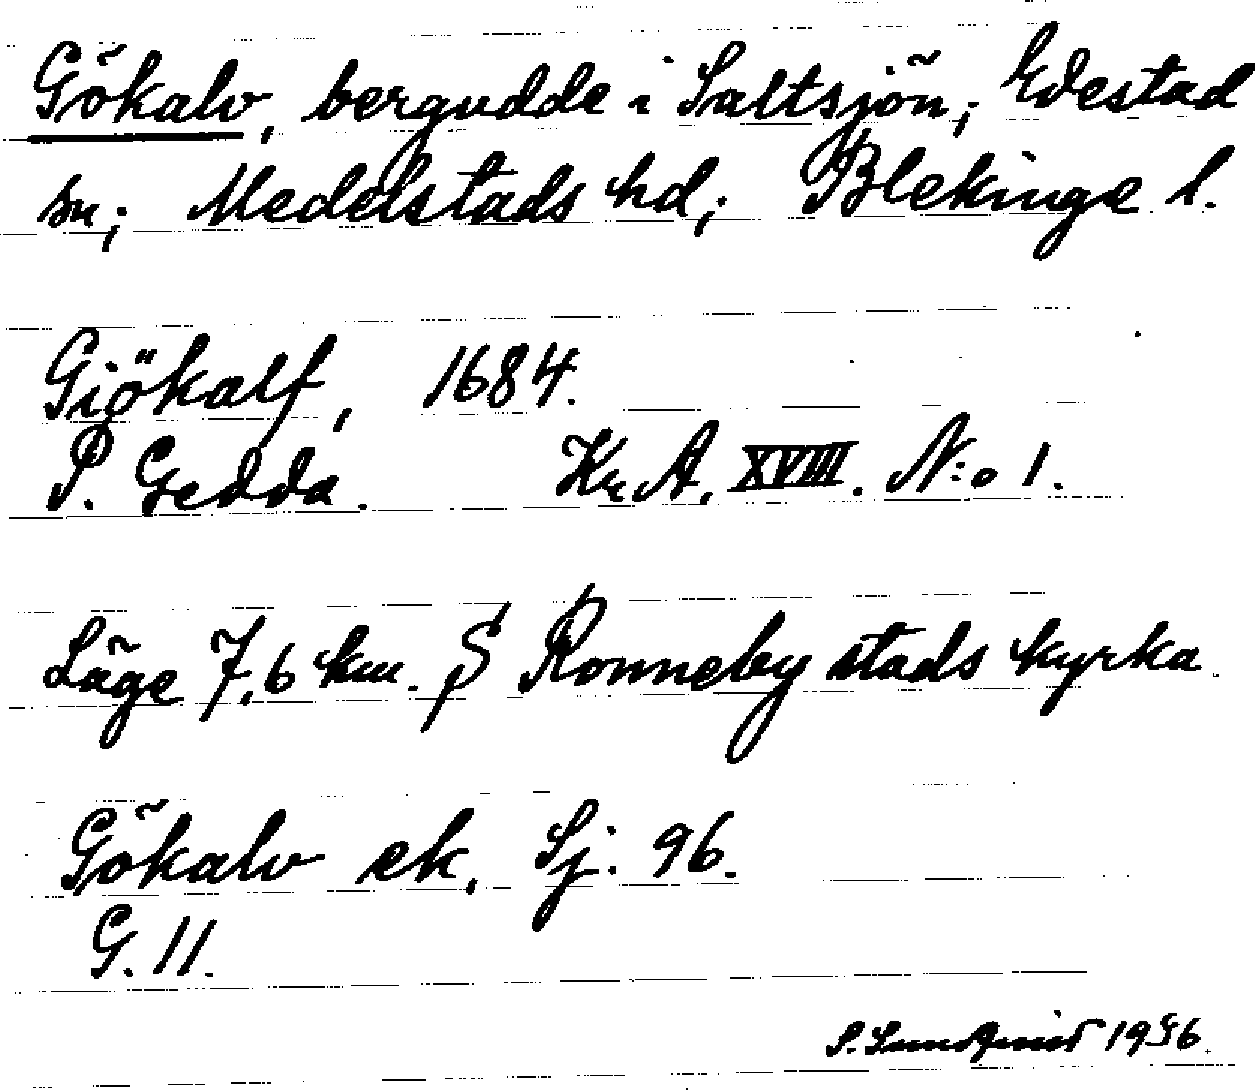 Gökalv, bergudde i Saltsjön; Edestad
sn; Medelstads hd; Blekinge l.
Giökalf, 1684.
P. Gedda. Kr. A. XVIII. N:o 1.
Läge 7,6 km. S Ronneby stads kyrka.
Gökalv ek. Sj: 96.
G. 11.
S. Lundqvist 1956.